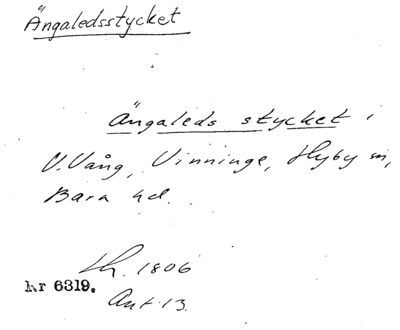 Ängaledsstycket
Ängaleds stycket i
V. Vång, Vinninge, Hyby sn,
Bara hd.
Lh. 1806
Nr 6319.
Akt 13.